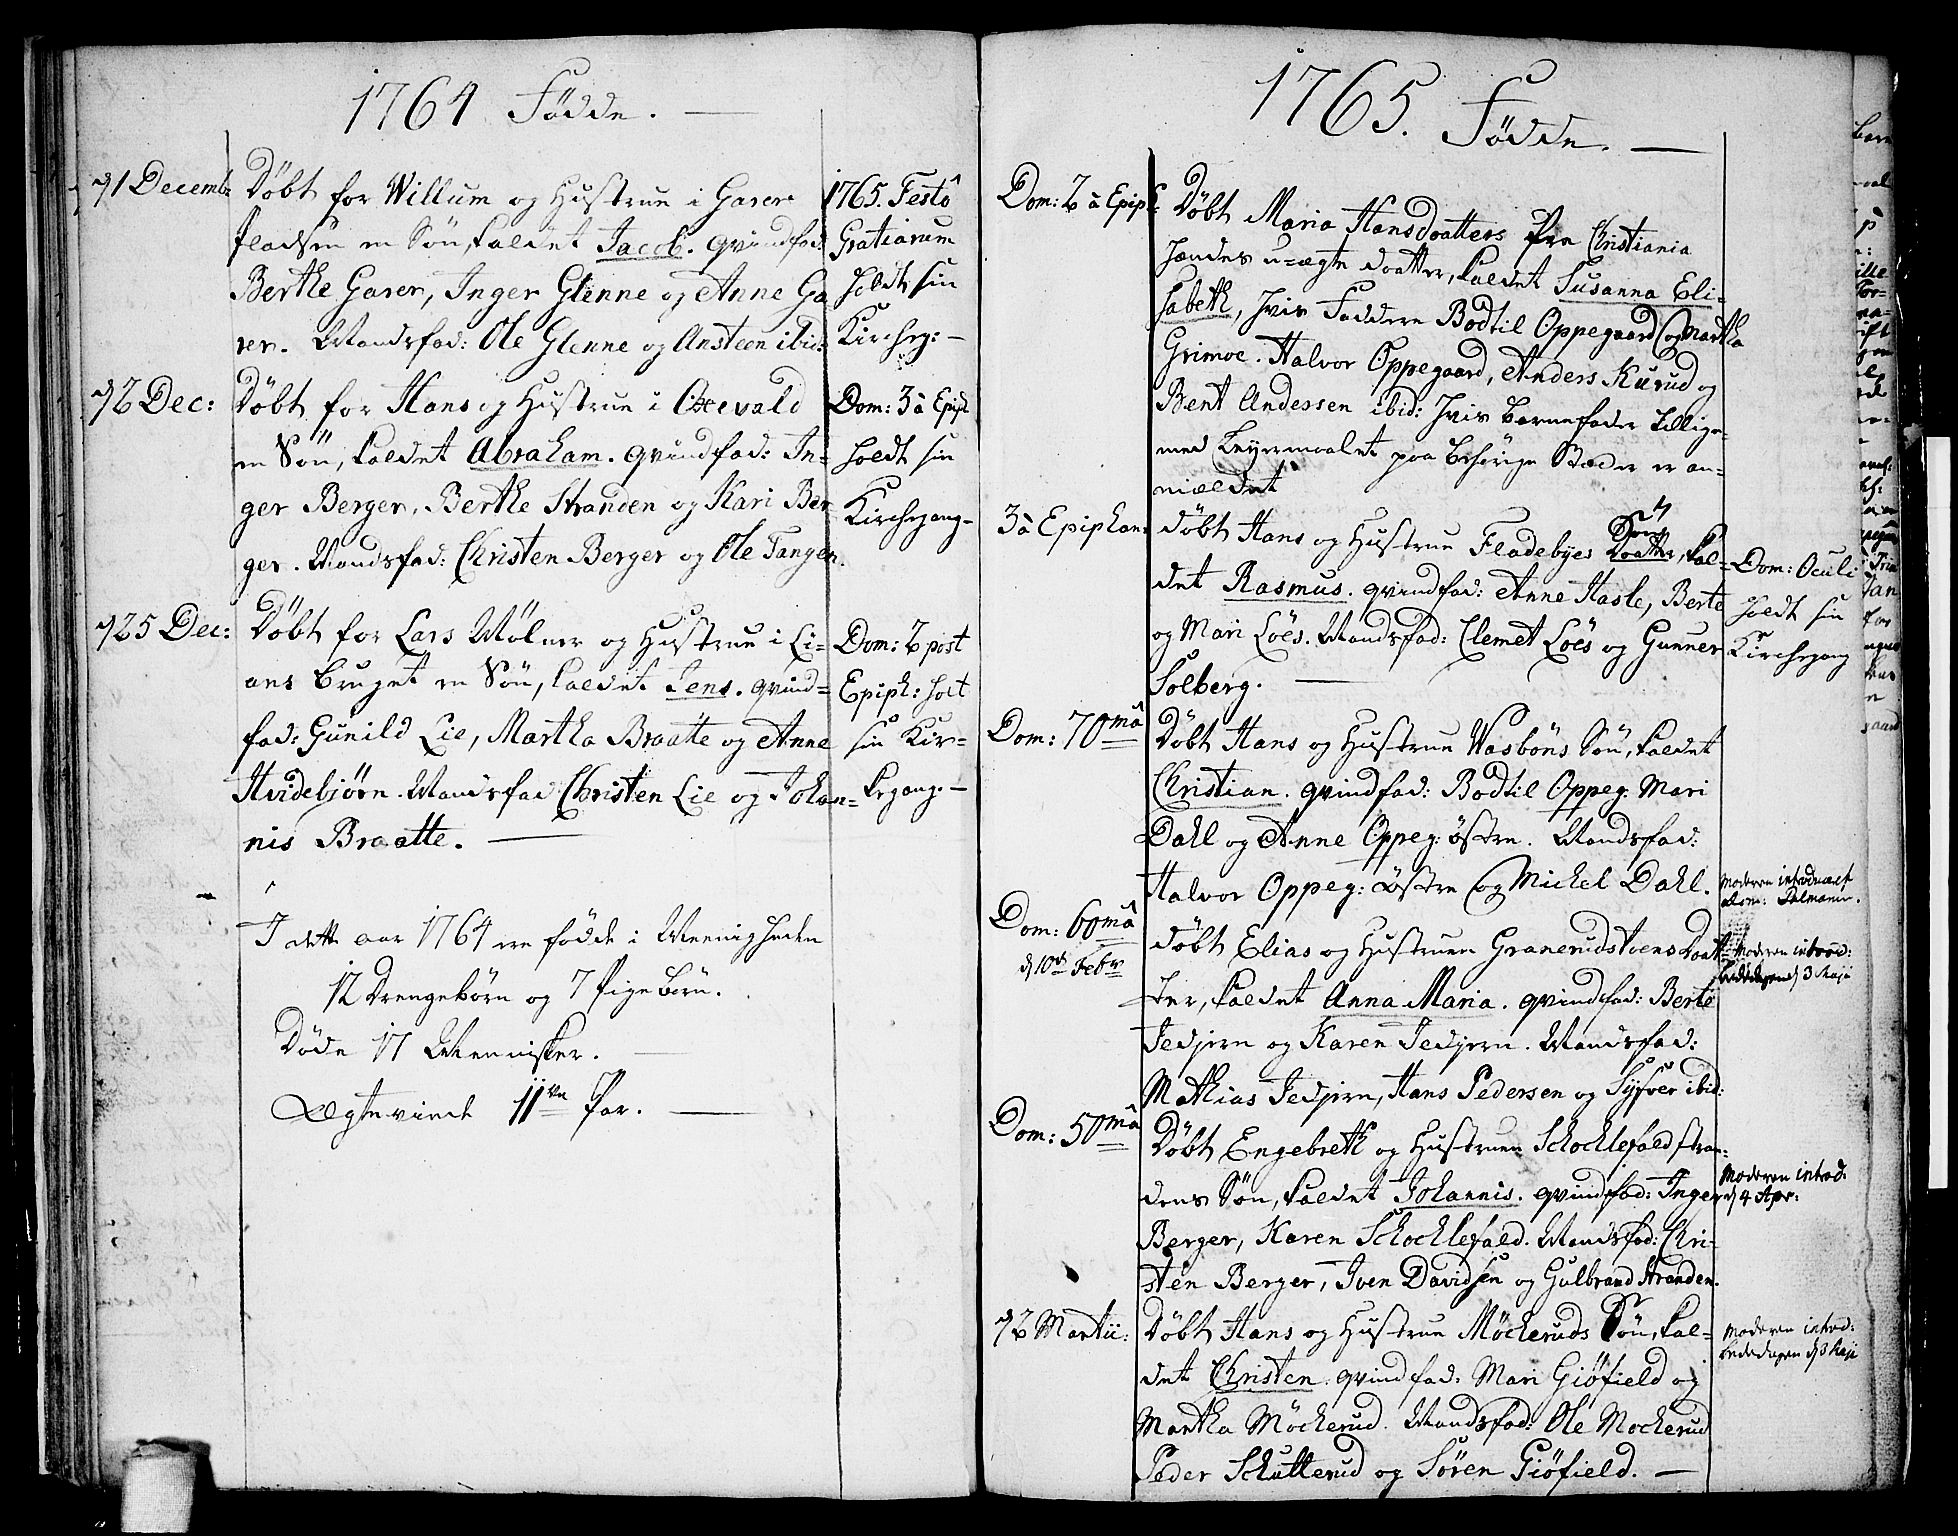 1764 Födde. —
d 1 Decemb:
Döbt for Willum og Hustrue i Gaser
Pladsen en Sön, kaldet Jacob. qvindfad:
Berthe Gaser, Inger Glenne og Anne Ga
ser. Mandsfad: Ole Glenne og Ansteen ibid:
1765. Festô
Gratiarum
holdt sin
Kircheg: —
d 2 Dec:
Döbt for Hans og Hustrue i
en Sön, kaldet Abraham. qvindfad: In=
ger Berger, Berthe Stranden og Kari Ber
ger. Mandsfad: Christen Berger og Ole Tangen.
Dom: 3 à Epiph
holdt sin
Kirchegang —
d 25 Dec:
Döbt for Lars Mölner og Hustrue i Li=
ans bruget en Sön, kaldet Jens. qvind=
fad: Gunild Lie, Martha Braatte og Anne
Hvidebjörn. Mandsfad Christen Lie og Johan=
nis Braatte. —
Dom: 2 post
Epiph: holt
sin Kir=
kegang. —
I dette aar 1764 ere födde i Meenigheden
12 Drengebörn og 7 Pige Börn.
Döde 17 Mennisker. —
Ægteviede 11ve Par. —
1765. Födde. —
Dom: 2 à Epiph:
Döbt Maria Hansdaatters fra Christiania
hendes u=ægte daatter, kaldet Susanna Eli=
sabeth, hvis Faddere Bodtil Oppegaard og Martha
Grimoe. Halvor Oppegaard, Anders Kurud og
Bent Andessen ibid: hvis barnefader tillige=
med Leyermaalet paa behörige Stæder er an=
mældet
3 à Epiphan:
döbt Hans og Hustrue Fladebyes Daatter Sön, kal=
det Rasmus. qvindfad: Anne Hasle, Berte
og Mari Löes. Mandsfad: Clemet Löes og Gunner
Solberg. —
Dom: Oculi
holdt sin
Kirchegang
Dom: 70mâ
Döbt Hans og Hustrue Wasböns Sön, kaldet
Christian. qvindfad: Bodtil Oppeg: Mari
Dahl og Anne Oppeg: östre. Mandsfad:
Halvor Oppeg: östre og Michel Dahl.
Moderen introducert
Dom: Palmarum.
Dom: 60mâ
d 10de Febr
döbt Elias og Hustrues Granerudstuens Daat=
ter, kaldet Anna Maria. qvindfad: Berte
Tedjern og Karen Tedjern. Mandsfad:
Mathias Tedjern, Hans Pedersen og Syfver ibid:
Moderen introd:
bededagen d 3 Maji
Dom: 50mâ
Döbt Engebreth og Hustrues Schochlefald stran=
dens Sön, kaldet Johannis. qvindfad: Inger
Berger, Karen Schochlefald. Mandsfad: Chri=
sten Berger, Iven Davidsen og Gulbrand Stranden.
Moderen introd:
d 4 Apr:
d 2 Martii:
Döbt Hans og Hustrue Möckeruds Sön, kal=
det Christen. qvindfad: Mari Giöfield og
Martha Möckerud. Mandsfad: Ole Mockerud
Peder Schutterud og Sören Giöfield. —
Moderen introd:
bededagen d 3 Maji